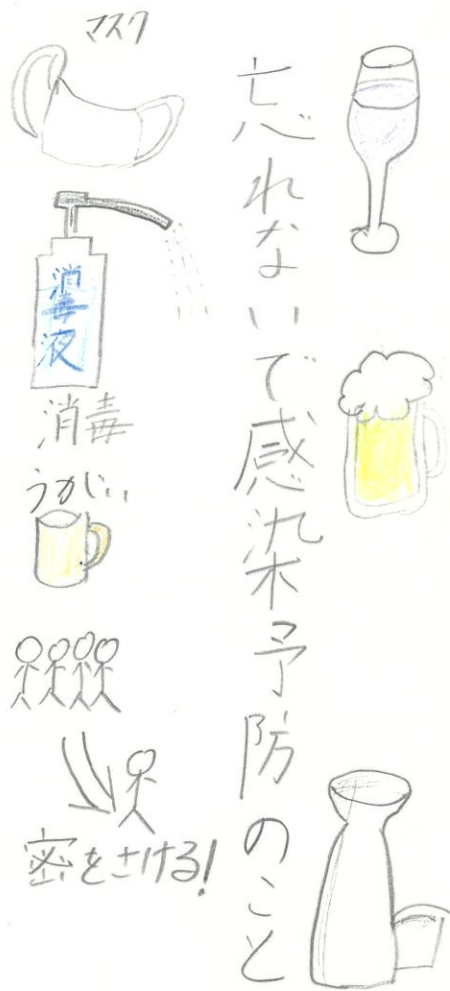 忘れないで感染予防のこと
マスク
消毒液
消毒
うがい
密をさける!